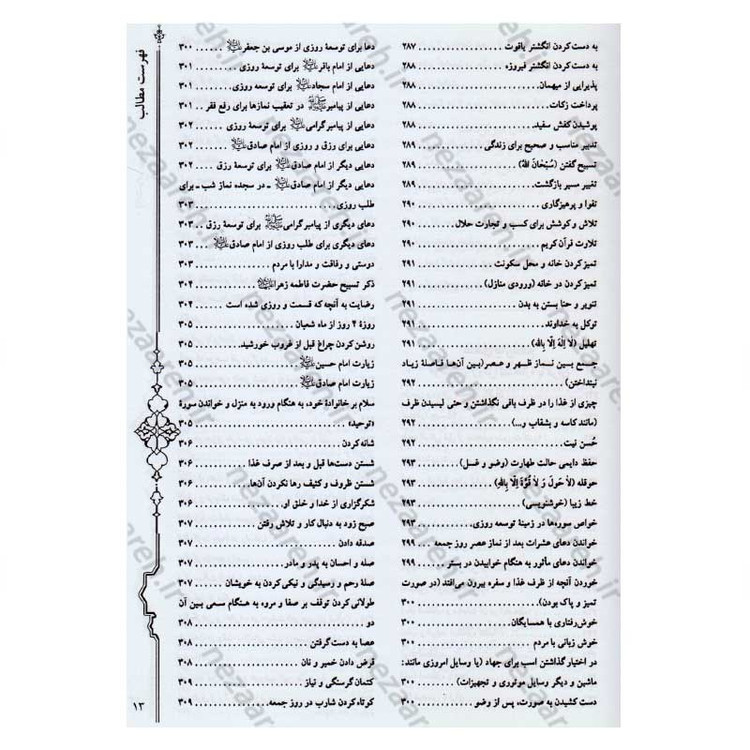 فهرست مطالب
به دست کردن انگشتر یاقوت ........ ۲۸۷
به دست کردن انگشتر فیروزه ........ ۲۸۸
پذیرایی از میهمان ........ ۲۸۸
پرداخت زکات ........ ۲۸۸
پوشیدن کفش سفید ........ ۲۸۸
تدبیر مناسب و صحیح برای زندگی ........ ۲۸۹
تسبیح گفتن (سُبْحَانَ اللهِ) ........ ۲۸۹
تغییر مسیر بازگشت ........ ۲۸۹
تقوا و پرهیزگاری ........ ۲۹۰
تلاش و کوشش برای کسب و تجارت حلال ........ ۲۹۰
تلاوت قرآن کریم ........ ۲۹۰
تمیز کردن خانه و محل سکونت ........ ۲۹۱
تمیز کردن در خانه (ورودی منازل) ........ ۲۹۱
تنویر و حنا بستن به بدن ........ ۲۹۱
توکل به خداوند ........ ۲۹۱
تهلیل (لَا اِلٰهَ اِلَّا بِالله) ........ ۲۹۱
جمع بین نماز ظهر و عصر (بین آن‌ها فاصلهٔ زیاد
نینداختن) ........ ۲۹۲
چیزی از غذا را در ظرف باقی نگذاشتن و حتی لیسیدن ظرف
(مانند کاسه و بشقاب و...) ........ ۲۹۲
حُسن نیت ........ ۲۹۲
حفظ دایمی حالت طهارت (وضو و غسل) ........ ۲۹۳
حوقله (لَا حَولَ وَ لَا قُوَّةَ اِلَّا بِاللهِ) ........ ۲۹۳
خط زیبا (خوشنویسی) ........ ۲۹۳
خواص سوره‌ها در زمینهٔ توسعه روزی ........ ۲۹۳
خواندن دعای عشرات بعد از نماز عصر روز جمعه ... ۲۹۹
خواندن دعای مأثور به هنگام خوابیدن در بستر .... ۲۹۹
خوردن آنچه از ظرف غذا و سفره بیرون می‌افتد (در صورت
تمیز و پاک بودن) ........ ۳۰۰
خوش‌رفتاری با همسایگان ........ ۳۰۰
خوش زبانی با مردم ........ ۳۰۰
در اختیار گذاشتن اسب برای جهاد (یا وسایل امروزی مانند:
ماشین و دیگر وسایل موتوری و تجهیزات) ........ ۳۰۰
دست کشیدن به صورت، پس از وضو ........ ۳۰۰
دعا برای توسعهٔ روزی از موسی بن جعفر ........ ۳۰۰
دعایی از امام باقر برای توسعهٔ روزی ........ ۳۰۱
دعایی از امام سجاد برای توسعه روزی ........ ۳۰۱
دعایی از پیامبر در تعقیب نمازها برای رفع فقر .. ۳۰۱
دعایی از پیامبر گرامی برای توسعهٔ روزی ........ ۳۰۲
دعایی برای رزق و روزی از امام صادق ........ ۳۰۲
دعایی دیگر از امام صادق برای توسعهٔ رزق .... ۳۰۲
دعایی دیگر از امام صادق ـ در سجده نماز شب ـ برای
طلب روزی ........ ۳۰۳
دعای دیگری از پیامبر گرامی برای توسعهٔ رزق .. ۳۰۳
دعای دیگری برای طلب روزی از امام صادق .. ۳۰۳
دوستی و رفاقت و مدارا با مردم ........ ۳۰۳
ذکر تسبیح حضرت فاطمه زهرا ........ ۳۰۴
رضایت به آنچه که قسمت و روزی شده است ........ ۳۰۴
روزهٔ ۴ روز از ماه شعبان ........ ۳۰۵
روشن کردن چراغ قبل از غروب خورشید ........ ۳۰۵
زیارت امام حسین ........ ۳۰۵
زیارت امام صادق ........ ۳۰۵
سلام بر خانوادهٔ خود، به هنگام ورود به منزل و خواندن سورهٔ
«توحید» ........ ۳۰۵
شانه کردن ........ ۳۰۶
شستن دست‌ها قبل و بعد از صرف غذا ........ ۳۰۶
شستن ظروف و کثیف رها نکردن آن‌ها ........ ۳۰۶
شکرگزاری از خدا و خلق او ........ ۳۰۶
صبح زود به دنبال کار و تلاش رفتن ........ ۳۰۷
صدقه دادن ........ ۳۰۷
صله و احسان به پدر و مادر ........ ۳۰۷
صلهٔ رحم و رسیدگی و نیکی کردن به خویشان ........ ۳۰۷
طولانی کردن توقف بر صفا و مروه به هنگام سعی بین آن
دو ........ ۳۰۸
عصا به دست گرفتن ........ ۳۰۸
قرض دادن خمیر و نان ........ ۳۰۸
کتمان گرسنگی و نیاز ........ ۳۰۹
کوتاه کردن شارب در روز جمعه ........ ۳۰۹
۱۳
nezaareh.ir